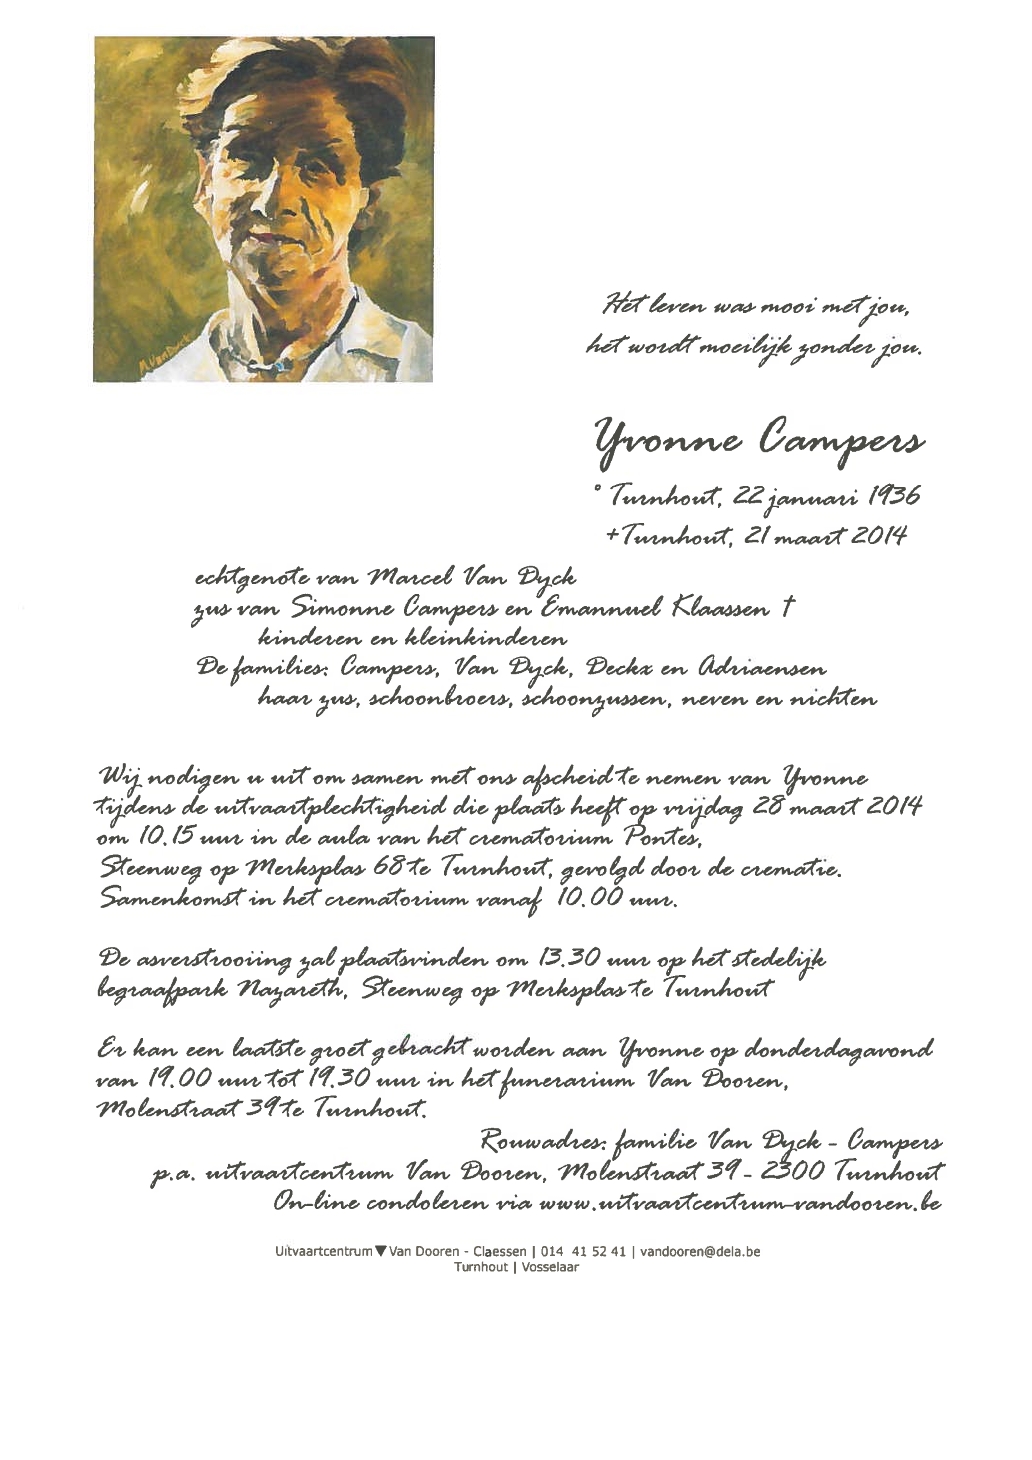 M. Van Dyck
Het leven was mooi met jou,
het wordt moeilijk zonder jou.
Yvonne Campers
° Turnhout, 22 januari 1936
+Turnhout, 21 maart 2014
echtgenote van Marcel Van Dyck
zus van Simonne Campers en Emannuel Klaassen †
kinderen en kleinkinderen
De families: Campers, Van Dyck, Deckx en Adriaensen
haar zus, schoonbroers, schoonzussen, neven en nichten
Wij nodigen u uit om samen met ons afscheid te nemen van Yvonne
tijdens de uitvaartplechtigheid die plaats heeft op vrijdag 28 maart 2014
om 10.15 uur in de aula van het crematorium Pontes,
Steenweg op Merksplas 68 te Turnhout, gevolgd door de crematie.
Samenkomst in het crematorium vanaf 10.00 uur.
De asverstrooiing zal plaatsvinden om 13.30 uur op het stedelijk
begraafpark Nazareth, Steenweg op Merksplas te Turnhout
Er kan een laatste groet gebracht worden aan Yvonne op donderdagavond
van 19.00 uur tot 19.30 uur in het funerarium Van Dooren,
Molenstraat 39 te Turnhout.
Rouwadres: familie Van Dyck - Campers
p.a. uitvaartcentrum Van Dooren, Molenstraat 39 - 2300 Turnhout
On-line condoleren via www.uitvaartcentrum-vandooren.be
Uitvaartcentrum▼Van Dooren - Claessen | 014 41 52 41 | vandooren@dela.be
Turnhout | Vosselaar